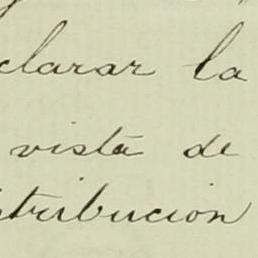 clarar la
vista de
stribucion